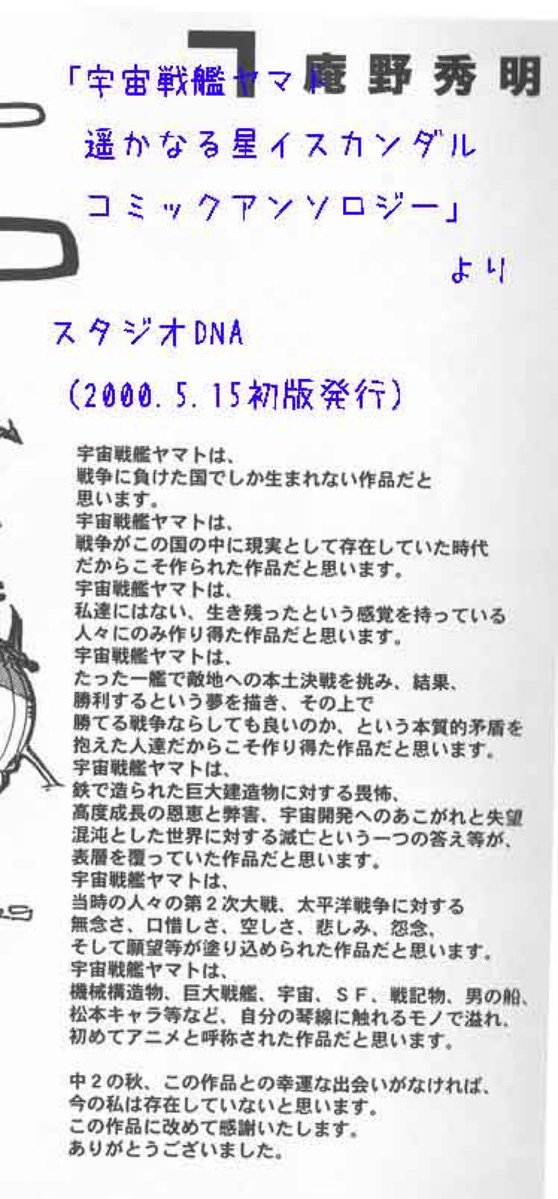 庵野秀明
「宇宙戦艦ヤマト
遥かなる星イスカンダル
コミックアンソロジー」
より
スタジオDNA
(2000.5.15初版発行)
宇宙戦艦ヤマトは、
戦争に負けた国でしか生まれない作品だと
思います。
宇宙戦艦ヤマトは、
戦争がこの国の中に現実として存在していた時代
だからこそ作られた作品だと思います。
宇宙戦艦ヤマトは、
私達にはない、生き残ったという感覚を持っている
人々にのみ作り得た作品だと思います。
宇宙戦艦ヤマトは、
たった一艦で敵地への本土決戦を挑み、結果、
勝利するという夢を描き、その上で
勝てる戦争ならしても良いのか、という本質的矛盾を
抱えた人達だからこそ作り得た作品だと思います。
宇宙戦艦ヤマトは、
鉄で造られた巨大建造物に対する畏怖、
高度成長の恩恵と弊害、宇宙開発へのあこがれと失望
混沌とした世界に対する滅亡という一つの答え等が、
表層を覆っていた作品だと思います。
宇宙戦艦ヤマトは、
当時の人々の第2次大戦、太平洋戦争に対する
無念さ、口惜しさ、空しさ、悲しみ、怨念、
そして願望等が塗り込められた作品だと思います。
宇宙戦艦ヤマトは、
機械構造物、巨大戦艦、宇宙、SF、戦記物、男の船、
松本キャラ等など、自分の琴線に触れるモノで溢れ、
初めてアニメと呼称された作品だと思います。
中2の秋、この作品との幸運な出会いがなければ、
今の私は存在していないと思います。
この作品に改めて感謝いたします。
ありがとうございました。